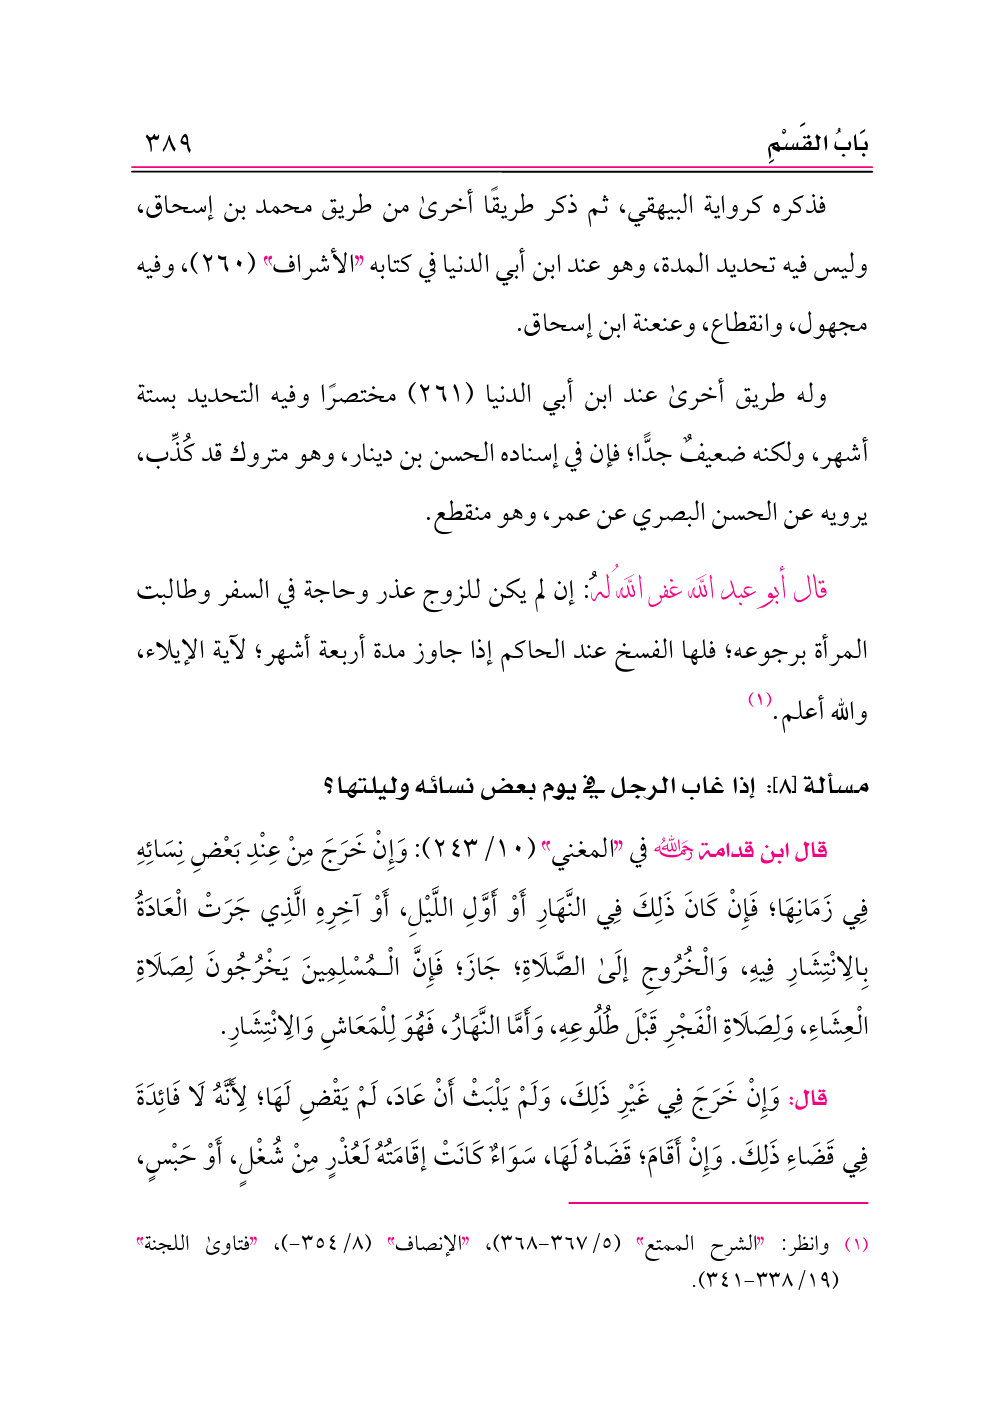 بَابُ القَسْمِ ٣٨٩
فذكره كرواية البيهقي، ثم ذكر طريقًا أخرىٰ من طريق محمد بن إسحاق،
وليس فيه تحديد المدة، وهو عند ابن أبي الدنيا في كتابه "الأشراف" (٢٦٠)، وفيه
مجهول، وانقطاع، وعنعنة ابن إسحاق.
وله طريق أخرىٰ عند ابن أبي الدنيا (٢٦١) مختصرًا وفيه التحديد بستة
أشهر، ولكنه ضعيفٌ جدًّا؛ فإن في إسناده الحسن بن دينار، وهو متروك قد كُذِّب،
يرويه عن الحسن البصري عن عمر، وهو منقطع.
قال أبو عبد الله غفر الله له: إن لم يكن للزوج عذر وحاجة في السفر وطالبت
المرأة برجوعه؛ فلها الفسخ عند الحاكم إذا جاوز مدة أربعة أشهر؛ لآية الإيلاء،
والله أعلم.(١)
مسألة [٨]: إذا غاب الرجل في يوم بعض نسائه وليلتها؟
قال ابن قدامة رحمه الله في "المغني" (١٠/ ٢٤٣): وَإِنْ خَرَجَ مِنْ عِنْدِ بَعْضِ نِسَائِهِ
فِي زَمَانِهَا؛ فَإِنْ كَانَ ذَلِكَ فِي النَّهَارِ أَوْ أَوَّلِ اللَّيْلِ، أَوْ آخِرِهِ الَّذِي جَرَتْ الْعَادَةُ
بِالِانْتِشَارِ فِيهِ، وَالْخُرُوجِ إلَىٰ الصَّلَاةِ؛ جَازَ؛ فَإِنَّ الْـمُسْلِمِينَ يَخْرُجُونَ لِصَلَاةِ
الْعِشَاءِ، وَلِصَلَاةِ الْفَجْرِ قَبْلَ طُلُوعِهِ، وَأَمَّا النَّهَارُ، فَهُوَ لِلْمَعَاشِ وَالِانْتِشَارِ.
قال: وَإِنْ خَرَجَ فِي غَيْرِ ذَلِكَ، وَلَمْ يَلْبَثْ أَنْ عَادَ، لَمْ يَقْضِ لَهَا؛ لِأَنَّهُ لَا فَائِدَةَ
فِي قَضَاءِ ذَلِكَ. وَإِنْ أَقَامَ؛ قَضَاهُ لَهَا، سَوَاءٌ كَانَتْ إقَامَتُهُ لَعُذْرٍ مِنْ شُغْلٍ، أَوْ حَبْسٍ،
(١) وانظر: "الشرح الممتع" (٥/ ٣٦٧-٣٦٨)، "الإنصاف" (٨/ ٣٥٤-)، "فتاوىٰ اللجنة"
(١٩/ ٣٣٨-٣٤١).